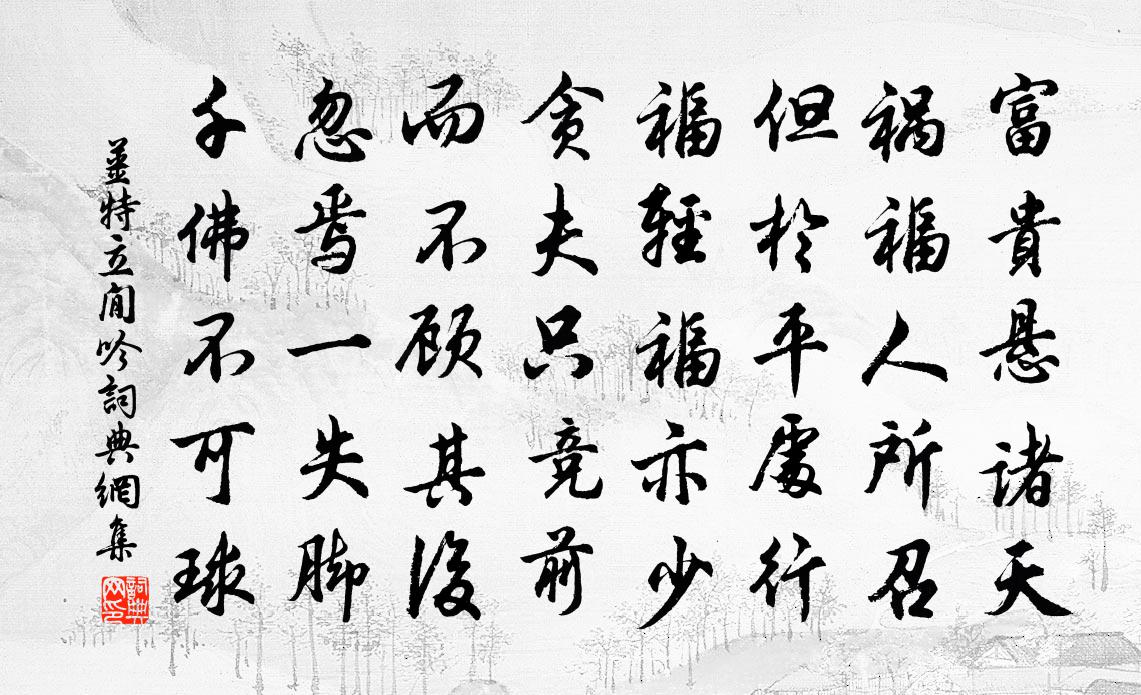 富貴悬诸天
祸福人所召
但於平處行
福輕福亦少
贪夫只竞前
而不顾其後
忽焉一失脚
千佛不可球
姜特立閒吟詞典網集
詞典